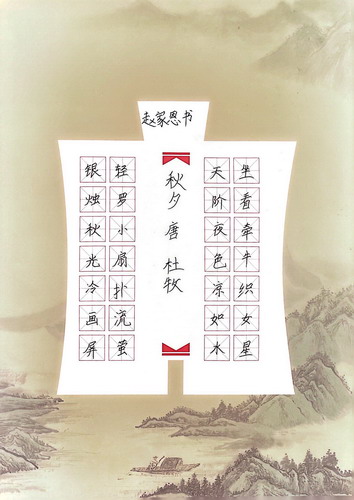 赵家恩书
秋夕 唐 杜牧
银烛秋光冷画屏
轻罗小扇扑流萤
天阶夜色凉如水
坐看牵牛织女星